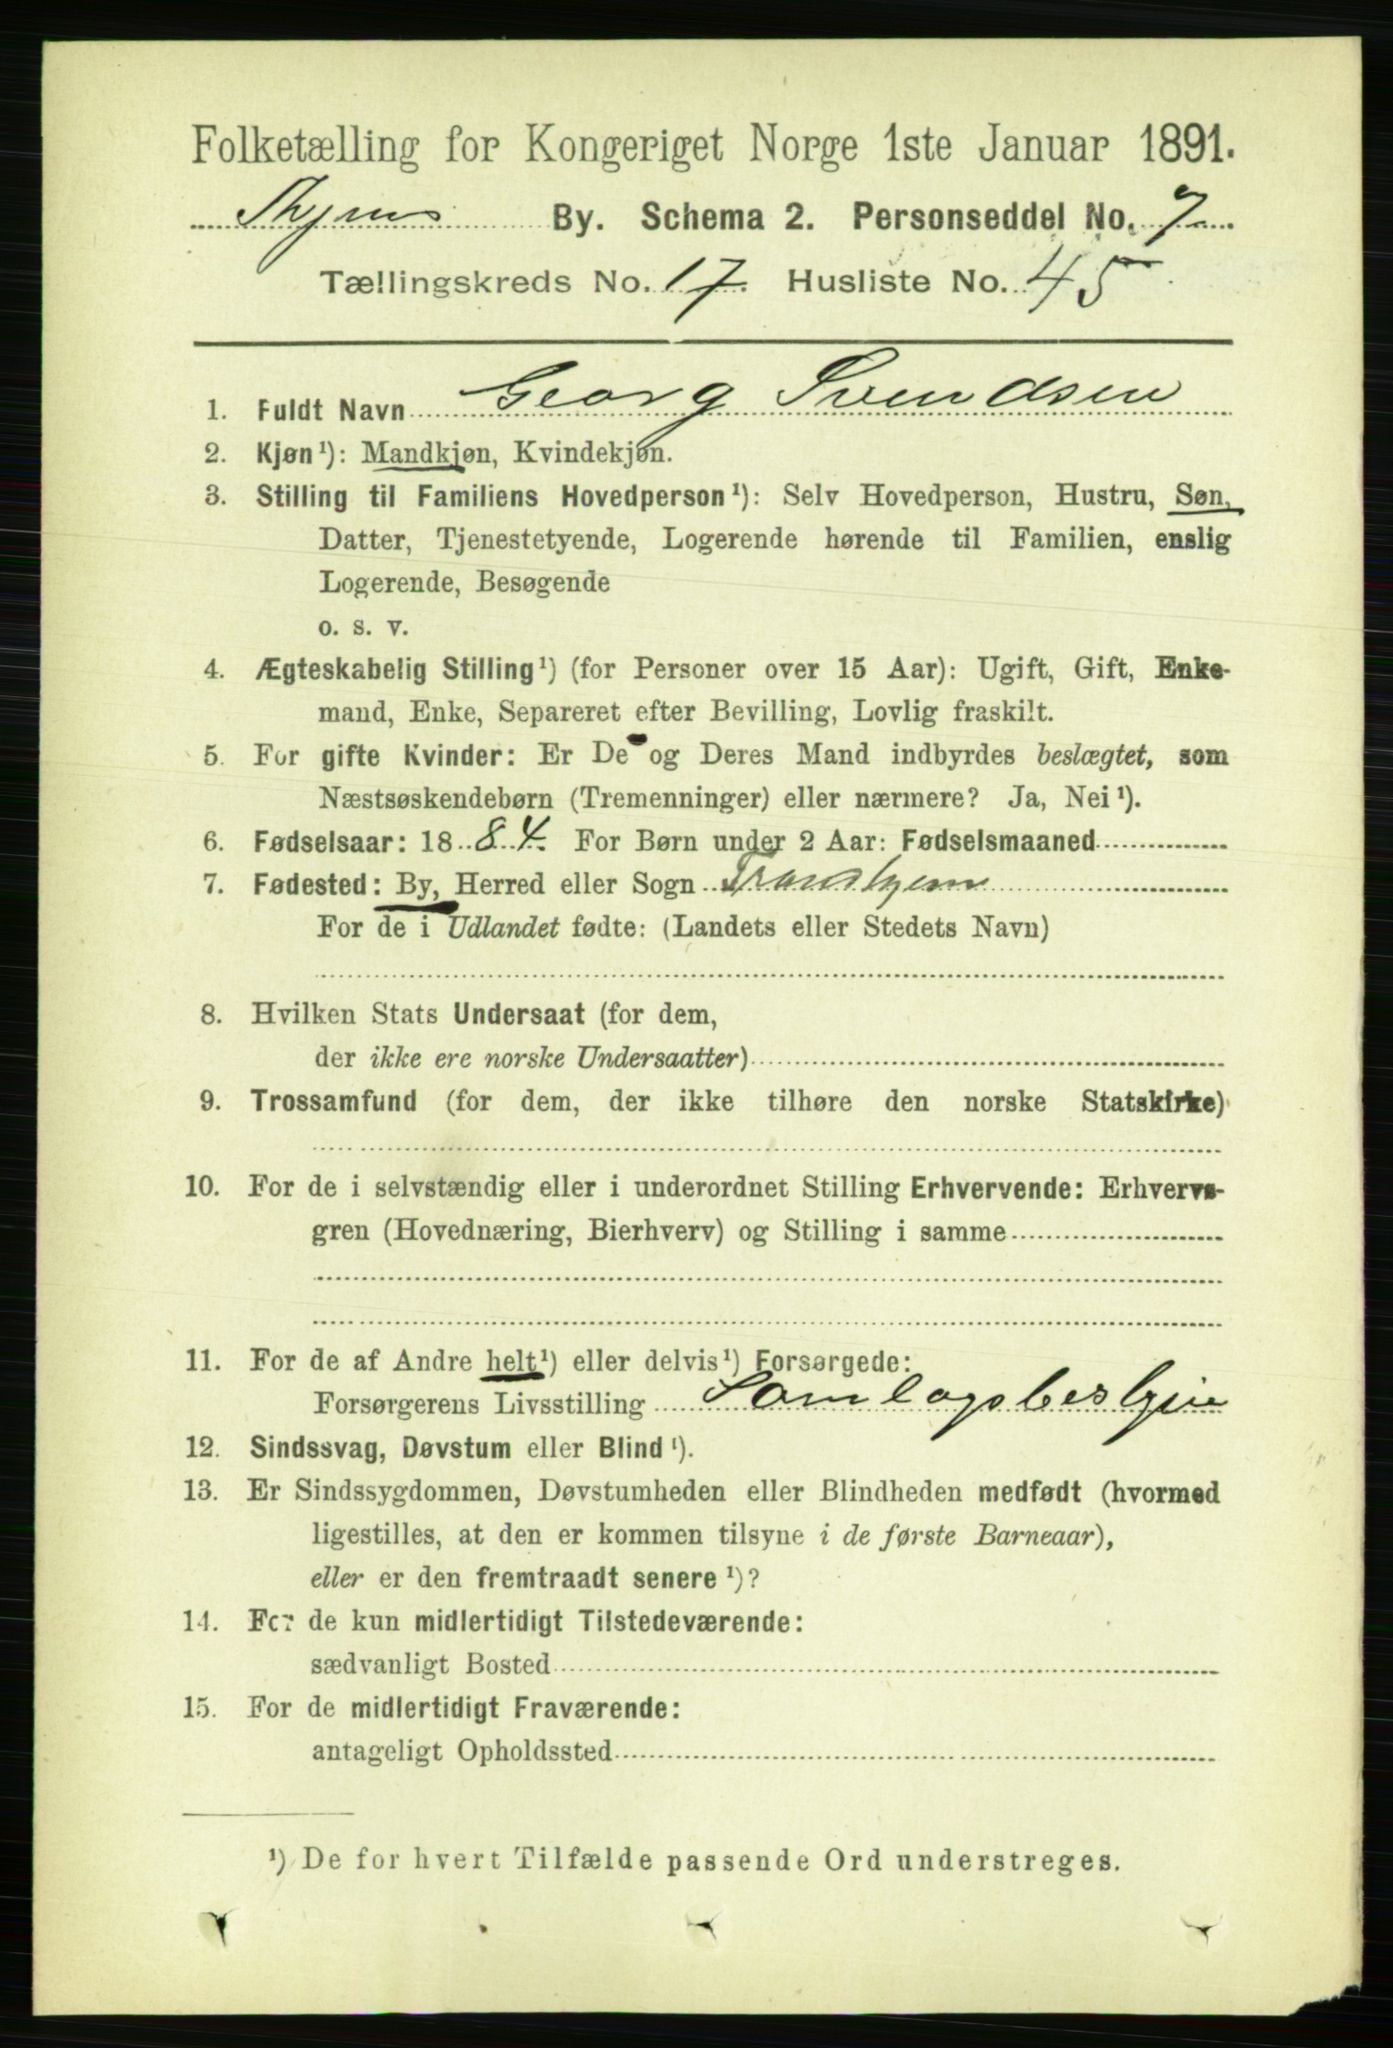 Folketælling for Kongeriget Norge 1ste Januar 1891.
Thjems By. Schema 2. Personseddel No. 7
Tællingskreds No. 17. Husliste No. 45
1. Fuldt Navn Georg Svendsen
2. Kjøn¹): Mandkjøn, Kvindekjøn.
3. Stilling til Familiens Hovedperson¹): Selv Hovedperson, Hustru, Søn,
Datter, Tjenestetyende, Logerende hørende til Familien, enslig
Logerende, Besøgende
o. s. v.
4. Ægteskabelig Stilling¹) (for Personer over 15 Aar): Ugift, Gift, Enke-
mand, Enke, Separeret efter Bevilling, Lovlig fraskilt.
5. For gifte Kvinder: Er De og Deres Mand indbyrdes beslægtet, som
Næstsøskendebørn (Tremenninger) eller nærmere? Ja, Nei¹).
6. Fødselsaar: 1884. For Børn under 2 Aar: Fødselsmaaned
7. Fødested: By, Herred eller Sogn Trondhjem
For de i Udlandet fødte: (Landets eller Stedets Navn)
8. Hvilken Stats Undersaat (for dem,
der ikke ere norske Undersaatter)
9. Trossamfund (for dem, der ikke tilhøre den norske Statskirke)
10. For de i selvstændig eller i underordnet Stilling Erhvervende: Erhvervs-
gren (Hovednæring, Bierhverv) og Stilling i samme
11. For de af Andre helt¹) eller delvis¹) Forsørgede:
Forsørgerens Livsstilling Samlagsbestyrer
12. Sindssvag, Døvstum eller Blind¹).
13. Er Sindssygdommen, Døvstumheden eller Blindheden medfødt (hvormed
ligestilles, at den er kommen tilsyne i de første Barneaar),
eller er den fremtraadt senere¹)?
14. For de kun midlertidigt Tilstedeværende:
sædvanligt Bosted
15. For de midlertidigt Fraværende:
antageligt Opholdssted
¹) De for hvert Tilfælde passende Ord understreges.